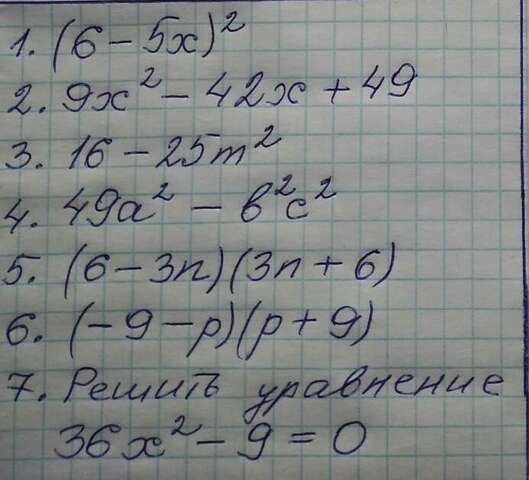 1. (6 - 5x)²
2. 9x² - 42x + 49
3. 16 - 25m²
4. 49a² - в²c²
5. (6 - 3n)(3n + 6)
6. (-9 - p)(p + 9)
7. Решить уравнение
36x² - 9 = 0